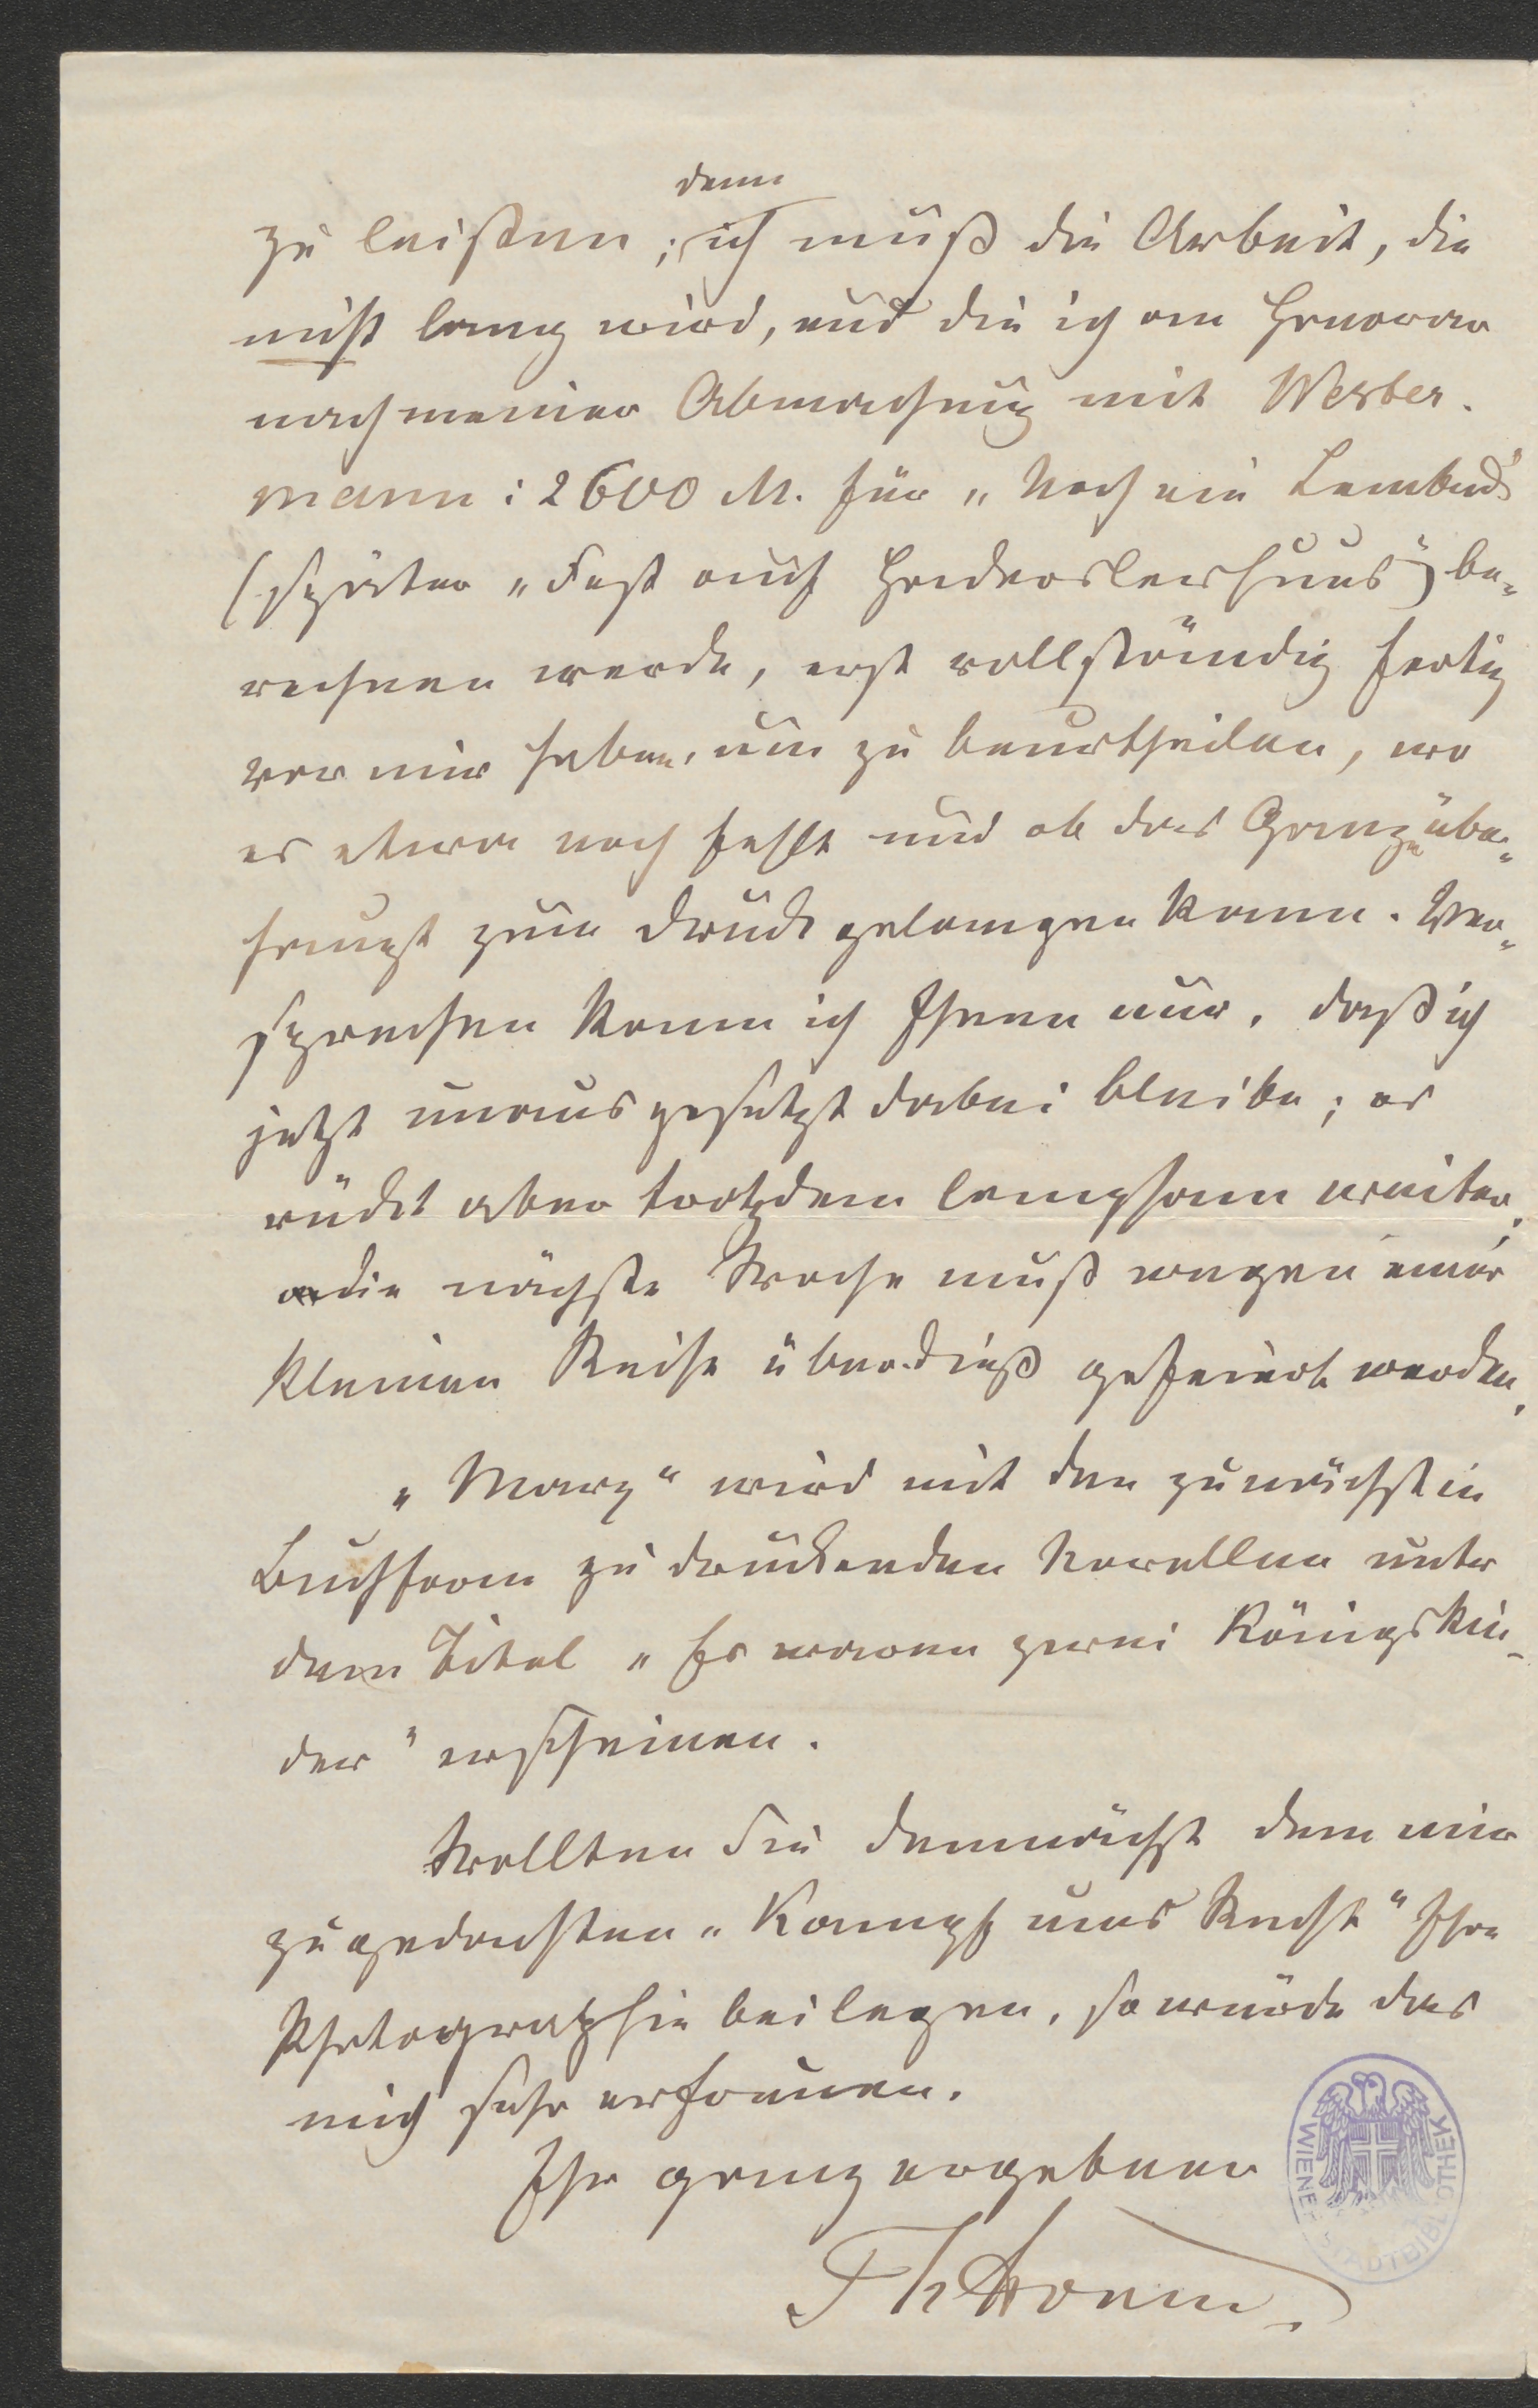 denn
zu leisten; ich muß die Arbeit, die
nicht lang wird, und die ich am Honorar
nach meiner Abmachung mit Wester-
mann: 2600 M. für „Noch ein Lembeck"
(später „Fest auf Haderslevhuus") be-
rechnen werde, erst vollständig fertig
vor mir haben, um zu beurtheilen, wo
es etwa noch fehlt und ob das Ganze über-
haupt zum Druck gelangen kann. Ver-
sprechen kann ich Ihnen nur, daß ich
jetzt unausgesetzt dabei bleibe; es
rückt aber trotzdem langsam weiter;
die nächste Woche muß wegen einer
kleinen Reise überdieß gefeiert werden.
„Marx" wird mit den zunächst in
Buchform zu druckenden Novellen unter
dem Titel „Es waren zwei Königskin-
der" erscheinen.
Wollten Sie demnächst dem mir
zugedachten „Kampf ums Recht" Ihre
Photographie beilegen, so würde das
mich sehr erfreuen.
Ihr ganz ergebener
ThStorm.
WIENER STADTBIBLIOTHEK